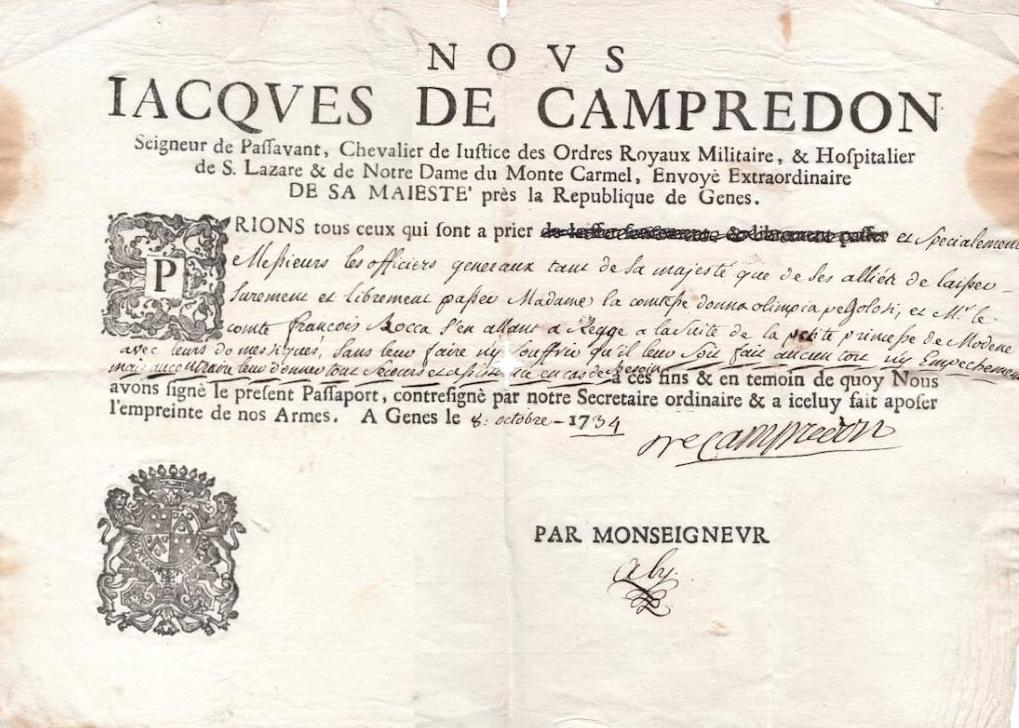 NOVS
IACQVES DE CAMPREDON
Seigneur de Paſſavant, Chevalier de Iuſtice des Ordres Royaux Militaire, & Hoſpitalier
de S. Lazare & de Notre Dame du Monte Carmel, Envoyè Extraordinaire
DE SA MAIESTE' près la Republique de Genes.
PRIONS tous ceux qui ſont a prier de laiſſer ſeurement & librement paſſer et specialement
Messieurs les officiers generaux tant de sa majesté que de ses alliéz de laisser
surement et librement passer Madame la comtesse donna olimpia et Mr. le
comte françois Rocca s'en allant a Regge a la suite de la petite princesse de Modene
avec leurs domestiques, sans leur faire ny souffrir qu'il leur soit fait aucun tort ny Empechement
mais au contraire leur donner tout secours et assistance en cas de Besoin a ces fins & en temoin de quoy Nous
avons ſignè le preſent Paſſaport, contreſignè par notre Secretaire ordinaire & a iceluy fait apoſer
l'empreinte de nos Armes. A Genes le 8: octobre - 1734
De Campredon
PAR MONSEIGNEVR